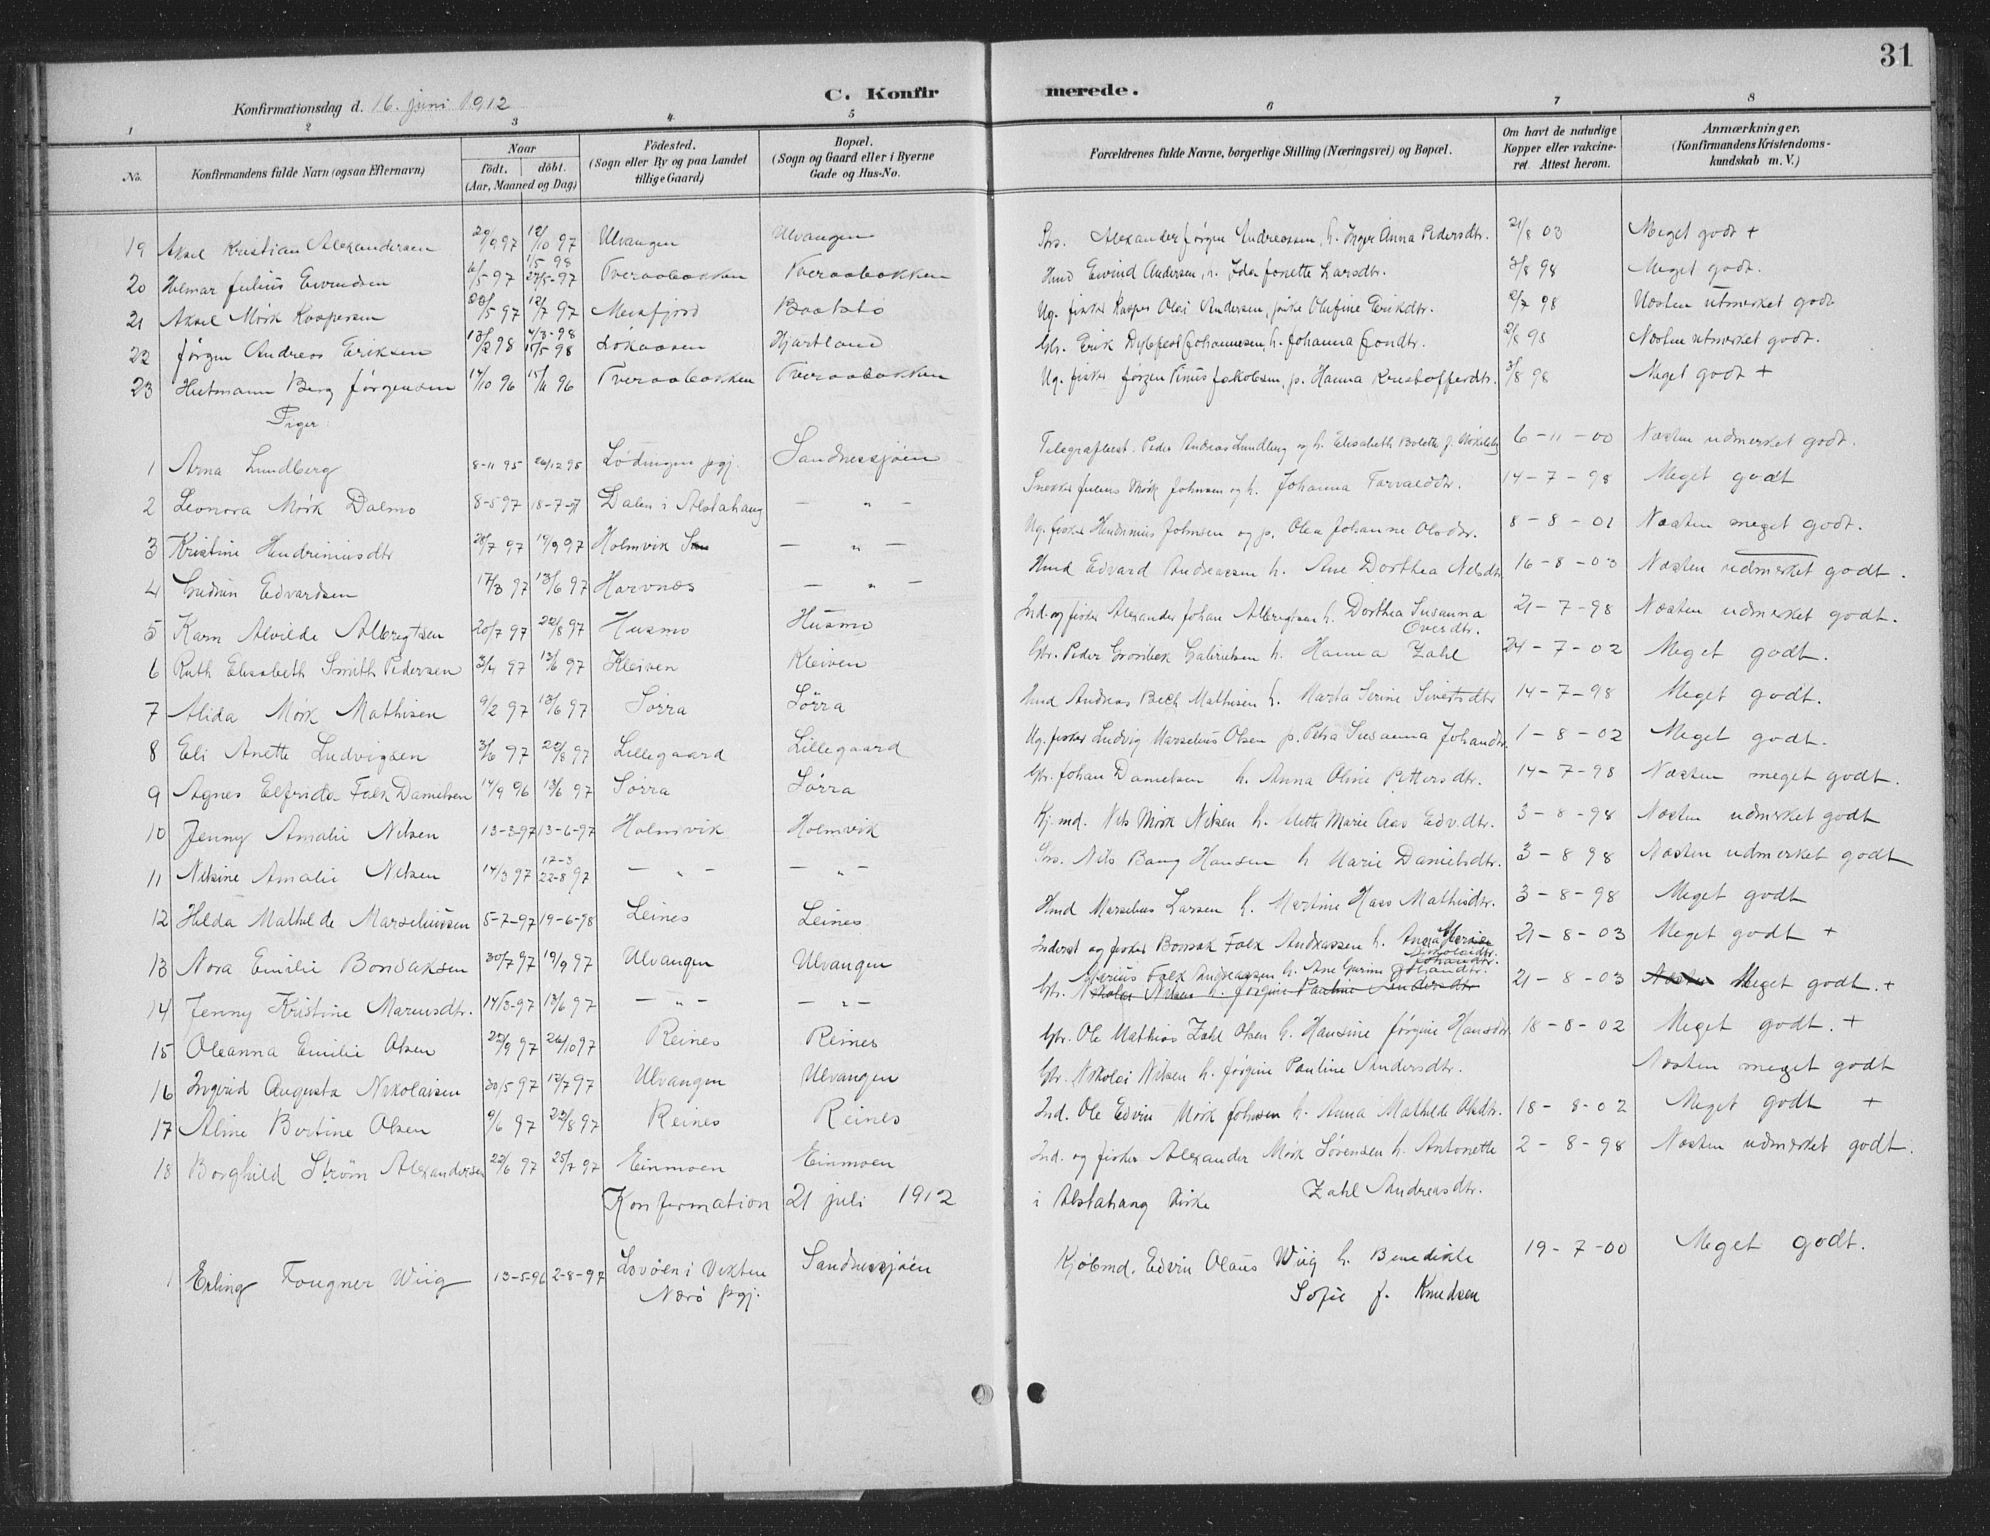 31
Konfirmationsdag d. 16. juni 1912 C. Konfirmerede.
1 2 3 4 5 6 7 8
No. Konfirmandens fulde Navn (ogsaa Efternavn) Naar födt. döbt. (Aar, Maaned og Dag) Födested. (Sogn eller By og paa Landet tillige Gaard) Bopæl. (Sogn og Gaard eller i Byerne Gade og Hus-No. Forældrenes fulde Navne, borgerlige Stilling (Næringsvei) og Bopæl. Om havt de naturlige Kopper eller vakcineret. Attest herom. Anmærkninger, (Konfirmandens Kristendomskundskab m. V.)
19 Aksel Kristian Alexandersen 29/9 97 Ulvangen Ulvangen Alexander Jørgen Andreassen, h. Inger Anna Pedersdtr. 21/8 03 Meget godt +
20 Hilmar Julius Eivindsen 6/5 97 Tveraabakken Tveraabakken Hmd Eivind Andersen, h. Ida Jonette Larsdtr. 3/8 98 Meget godt.
21 Aksel Mørk Kaspersen 12/7 97 Meisfjord Baatstø Ug. fisker Kasper Olai Andersen, pike Olufine Eriksdtr. 2/7 98 Næsten utmerket godt
22 Jørgen Andreas Eriksen 13/2 98 4/3-98 15/5-98 Løkaasen Hjartland Gbr. Erik Dybfest Johannesen, h. Johanna Jondtr. 21/8 98 Næsten utmerket godt.
23 Hutmann Berg Jørgensen 14/10 96 15/11 96 Tveraabakken Tveraabakken Ug. fisker Jørgen Pinus Jakobsen, p. Hanna Kristoffersdtr. 3/8 98 Meget godt +
Piger:
1 Arna Lundberg 8-11 95 26/12 95 Lødingen pgj. Sandnessjøen Telegrafbest. Peder Andreas Lundberg og h. Elisabeth Bolette f. 6-11-00 Næsten udmerket godt.
2 Leonora Mørk Dalmo 8-5 97 18-7-97 Dalen i Alstahaug — " — Snekker Julius Mørk Johnsen og h. Johanna Torvaldsdtr. 14-7-98 Meget godt
3 Kristine Hendriniusdtr 28/7 97 19/9 97 Holmvik — " — Ug. fisker Hendrinius Johnsen og p. Olea Johanne Olsdtr. 8-8-01 Næsten meget godt.
4 Gudrun Edvardsen 17/3 97 13/6 97 Harvnes — " — Hmd Edvard Andreassen h. Ane Dorthea Nilsdtr 16-8-03 Næsten udmerket godt.
5 Karn Alvilde Albregtsen 20/7 97 22/8 97 Husmo Husmo Ind. og fisker Alexander Johan Albregtsen h. Dorthea Susanna Oversdtr. 21-7-98 Næsten udmerket godt.
6 Ruth Elisabeth Smith Pedersen 3/4 97 13/6 97 Kleiven Kleiven Gbr. Peder Gronbek Gabrielsen h. Hanna Zahl 24-7-02 Meget godt.
7 Alida Mørk Mathisen 9/2 97 13/6 97 Sørra Sørra Hmd Andreas Bech Mathisen h. Marta Serine Sivertsdtr 14-7-98 Meget godt.
8 Eli Anette Ludvigsen 3/6 97 22/8 97 Lillegaard Lillegaard Ug. fisker Ludvig Marselius Olsen p. Petra Susanna Johandtr. 1-8-02 Meget godt.
9 Agnes Elfrida Falk Danielsen 14/9 96 13/6 97 Sørra Sørra Gbr. Johan Danielsen h. Anna Oline Pettersdtr. 14-7-98 Næsten meget godt.
10 Jenny Amalie Nilsen 13-3-97 13-6-97 Holmvik Holmvik Kj.md. Nils Mørk Nilsen h. Aleth Marie Aas Edv.dtr. 3-8-98 Næsten udmerket godt
11 Nilsine Amalie Nilsen 14/3 97 17-3 22-8 97 — " — — " — Nils Bang Hansen h Marie Danielsdtr. 3-8 98 Næsten udmerket godt
12 Hilda Mathilde Marseliussen 5-7-97 19-6-98 Leines Leines Hmd Marselius Larsen h. Martine Haas Mathisdtr. 3-8-98 Meget godt
13 Nora Emilie Bonsaksen 30/7 97 19/9 97 Ulvangen Ulvangen Inderst og fisker Bonsak Falk Andreassen h. Anna Maria Nikolaidtr. 21-8-03 Meget godt +
14 Jenny Kristine Mariusdtr. 14/3-97 13/6 97 — " — — " — Gbr. Marius Falk Andreassen h. Ane Gurine Johandtr. Nikolai Nilsen h. Jørgine Pauline Andersdtr 21-8-03 Næsten Meget godt. +
15 Oleanna Emilie Olsen 22/9 97 24/10 97 Reines Reines Gbr. Ole Mathias Zahl Olsen h. Hansine Jørgine Hansdtr 18-8-02 Meget godt. +
16 Ingerid Augusta Nikolaisen 30/5 97 12/7 97 Ulvangen Ulvangen Gbr. Nikolai Nilsen h. Jørgine Pauline Andersdtr. Næsten meget godt
17 Aline Bertine Olsen 9/6 97 22/8 97 Reines Reines Ind. Ole Edvin Mørk Johnsen h. Anna Mathilde Olsdtr. 18-8-02 Meget godt +
18 Borghild Strøm Alexandersen 22/6 97 25/7 97 Einmoen Einmoen Ind. og fisker Alexander Mørk Sørensen h. Antonette Zahl Andreasdtr. 2-8-98 Næsten udmerket godt.
Konfirmation 21 juli 1912 i Alstahaug kirke
1 Erling Fougner Wiig 13-5-96 2-8-97 Løvøen i Vikten Nærø pgj. Sandnessjøen Kjøbmd. Edvin Olaus Wiig h. Benedikte Sofie f. Knudsen 19-7-00 Meget godt.